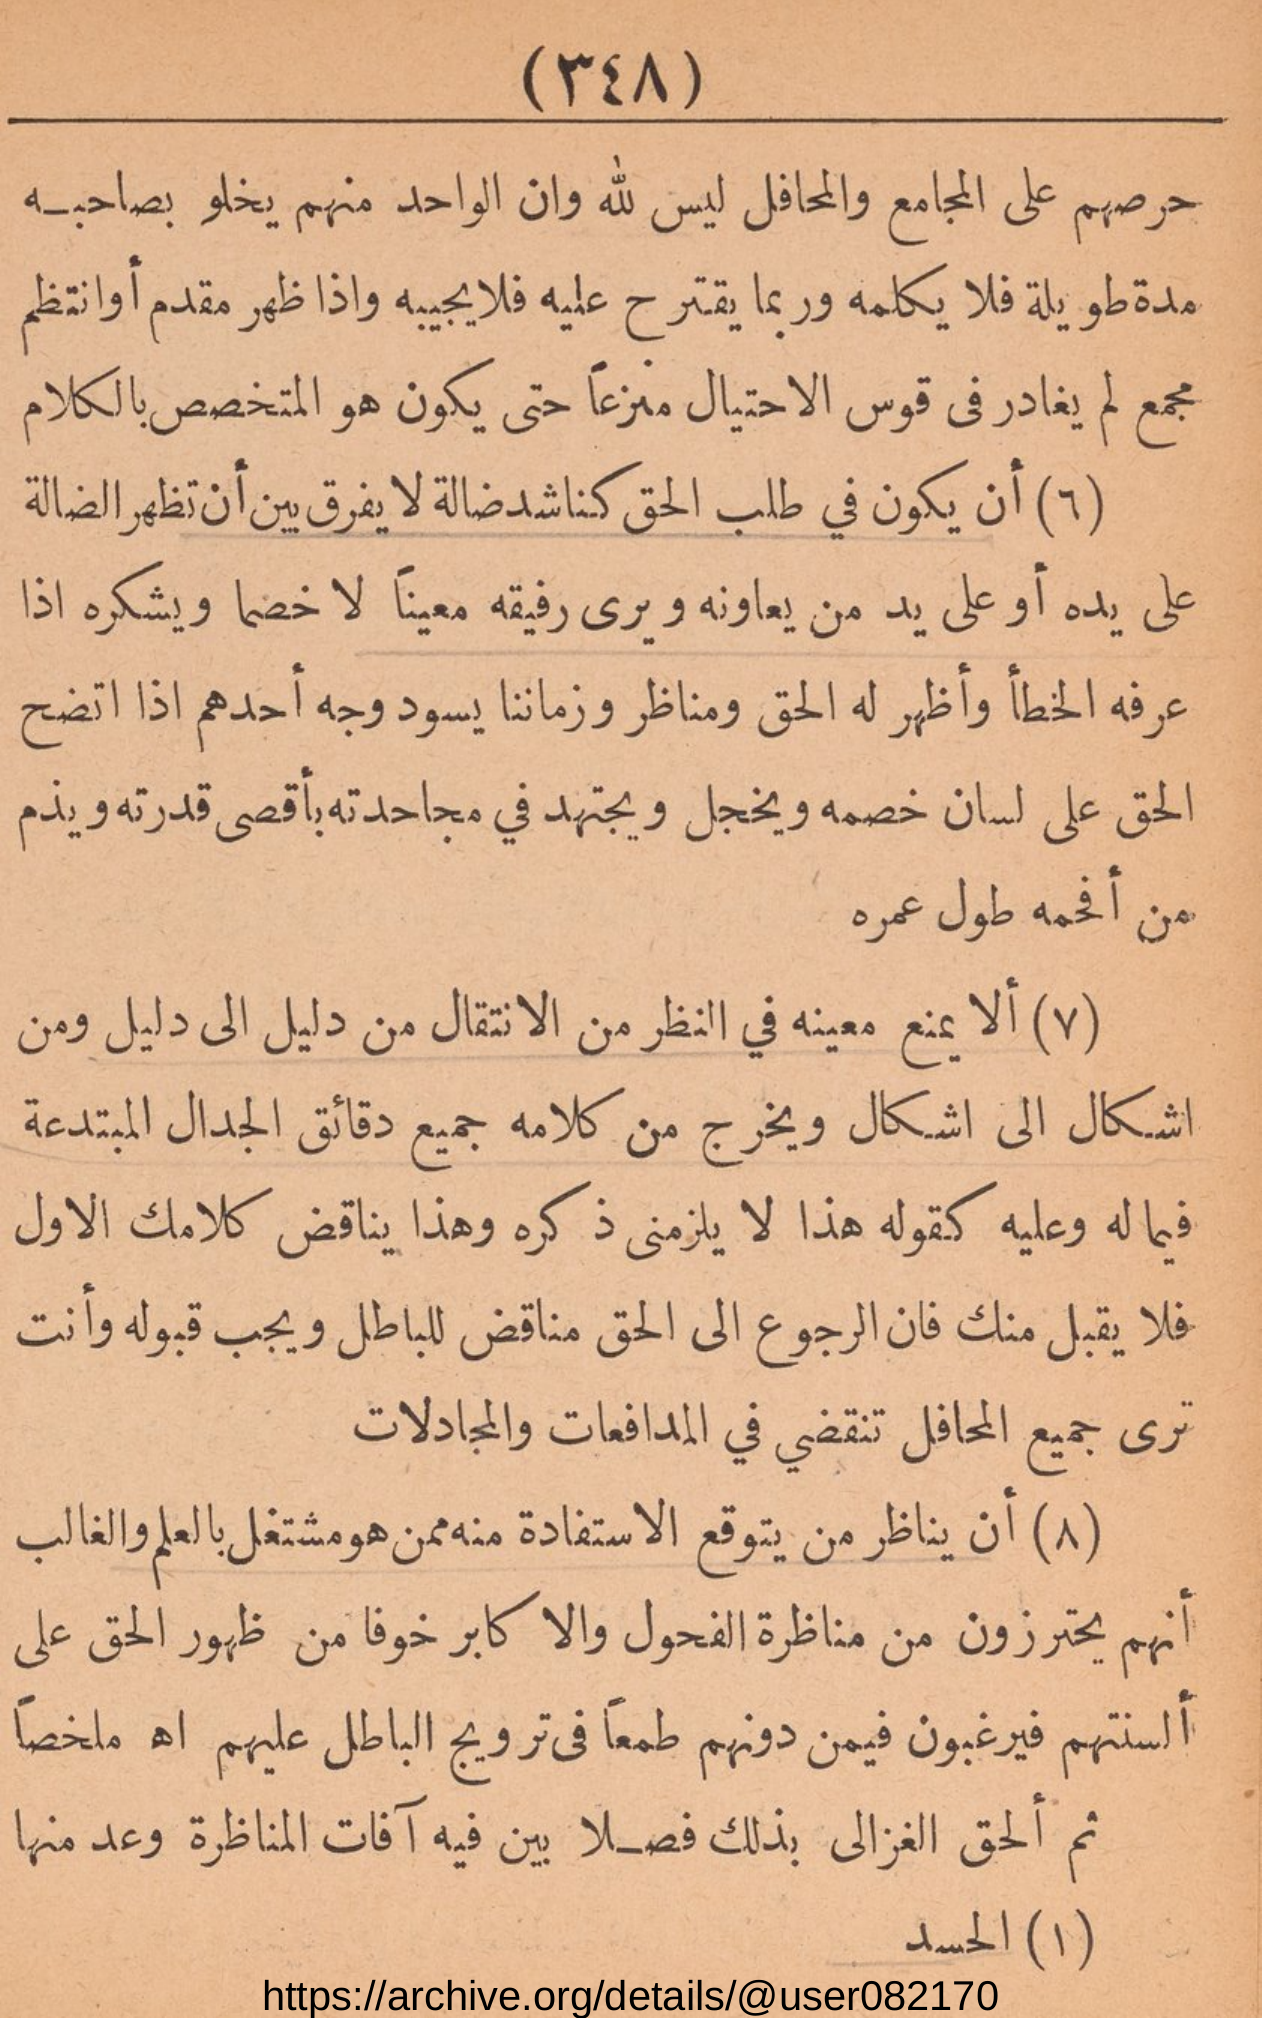 (٣٤٨)
حرصهم على المجامع والمحافل ليس لله وان الواحد منهم يخلو بصاحبـه
مدة طويلة فلا يكلمه وربما يقترح عليه فلا يجيبه واذا ظهر مقدم أو انتظم
مجمع لم يغادر في قوس الاحتيال منزعاً حتى يكون هو المتخصص بالكلام
(٦) أن يكون في طلب الحق كناشد ضالة لا يفرق بين أن تظهر الضالة
على يده أو على يد من يعاونه ويرى رفيقه معيناً لا خصما ويشكره اذا
عرفه الخطأ وأظهر له الحق ومناظر وزماننا يسود وجه أحدهم اذا اتضح
الحق على لسان خصمه ويخجل ويجتهد في مجاحدته بأقصى قدرته ويذم
من أفحمه طول عمره
(٧) ألا يمنع معينه في النظر من الانتقال من دليل الى دليل ومن
اشـكال الى اشـكال ويخرج من كلامه جميع دقائق الجدال المبتدعة
فيما له وعليه كقوله هذا لا يلزمنى ذكره وهذا يناقض كلامك الاول
فلا يقبل منك فان الرجوع الى الحق مناقض للباطل ويجب قبوله وأنت
ترى جميع المحافل تنقضي في المدافعات والمجادلات
(٨) أن يناظر من يتوقع الاستفادة منه ممن هو مشتغل بالعلم والغالب
أنهم يحترزون من مناظرة الفحول والاكابر خوفا من ظهور الحق على
ألسنتهم فيرغبون فيمن دونهم طمعاً في ترويج الباطل عليهم اه ملخصاً
ثم ألحق الغزالى بذلك فصـلا بين فيه آفات المناظرة وعد منها
(١) الحسد
https://archive.org/details/@user082170